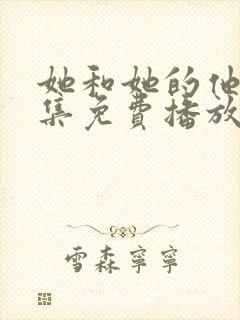 她和她的他
集免費播放
雪森寧寧